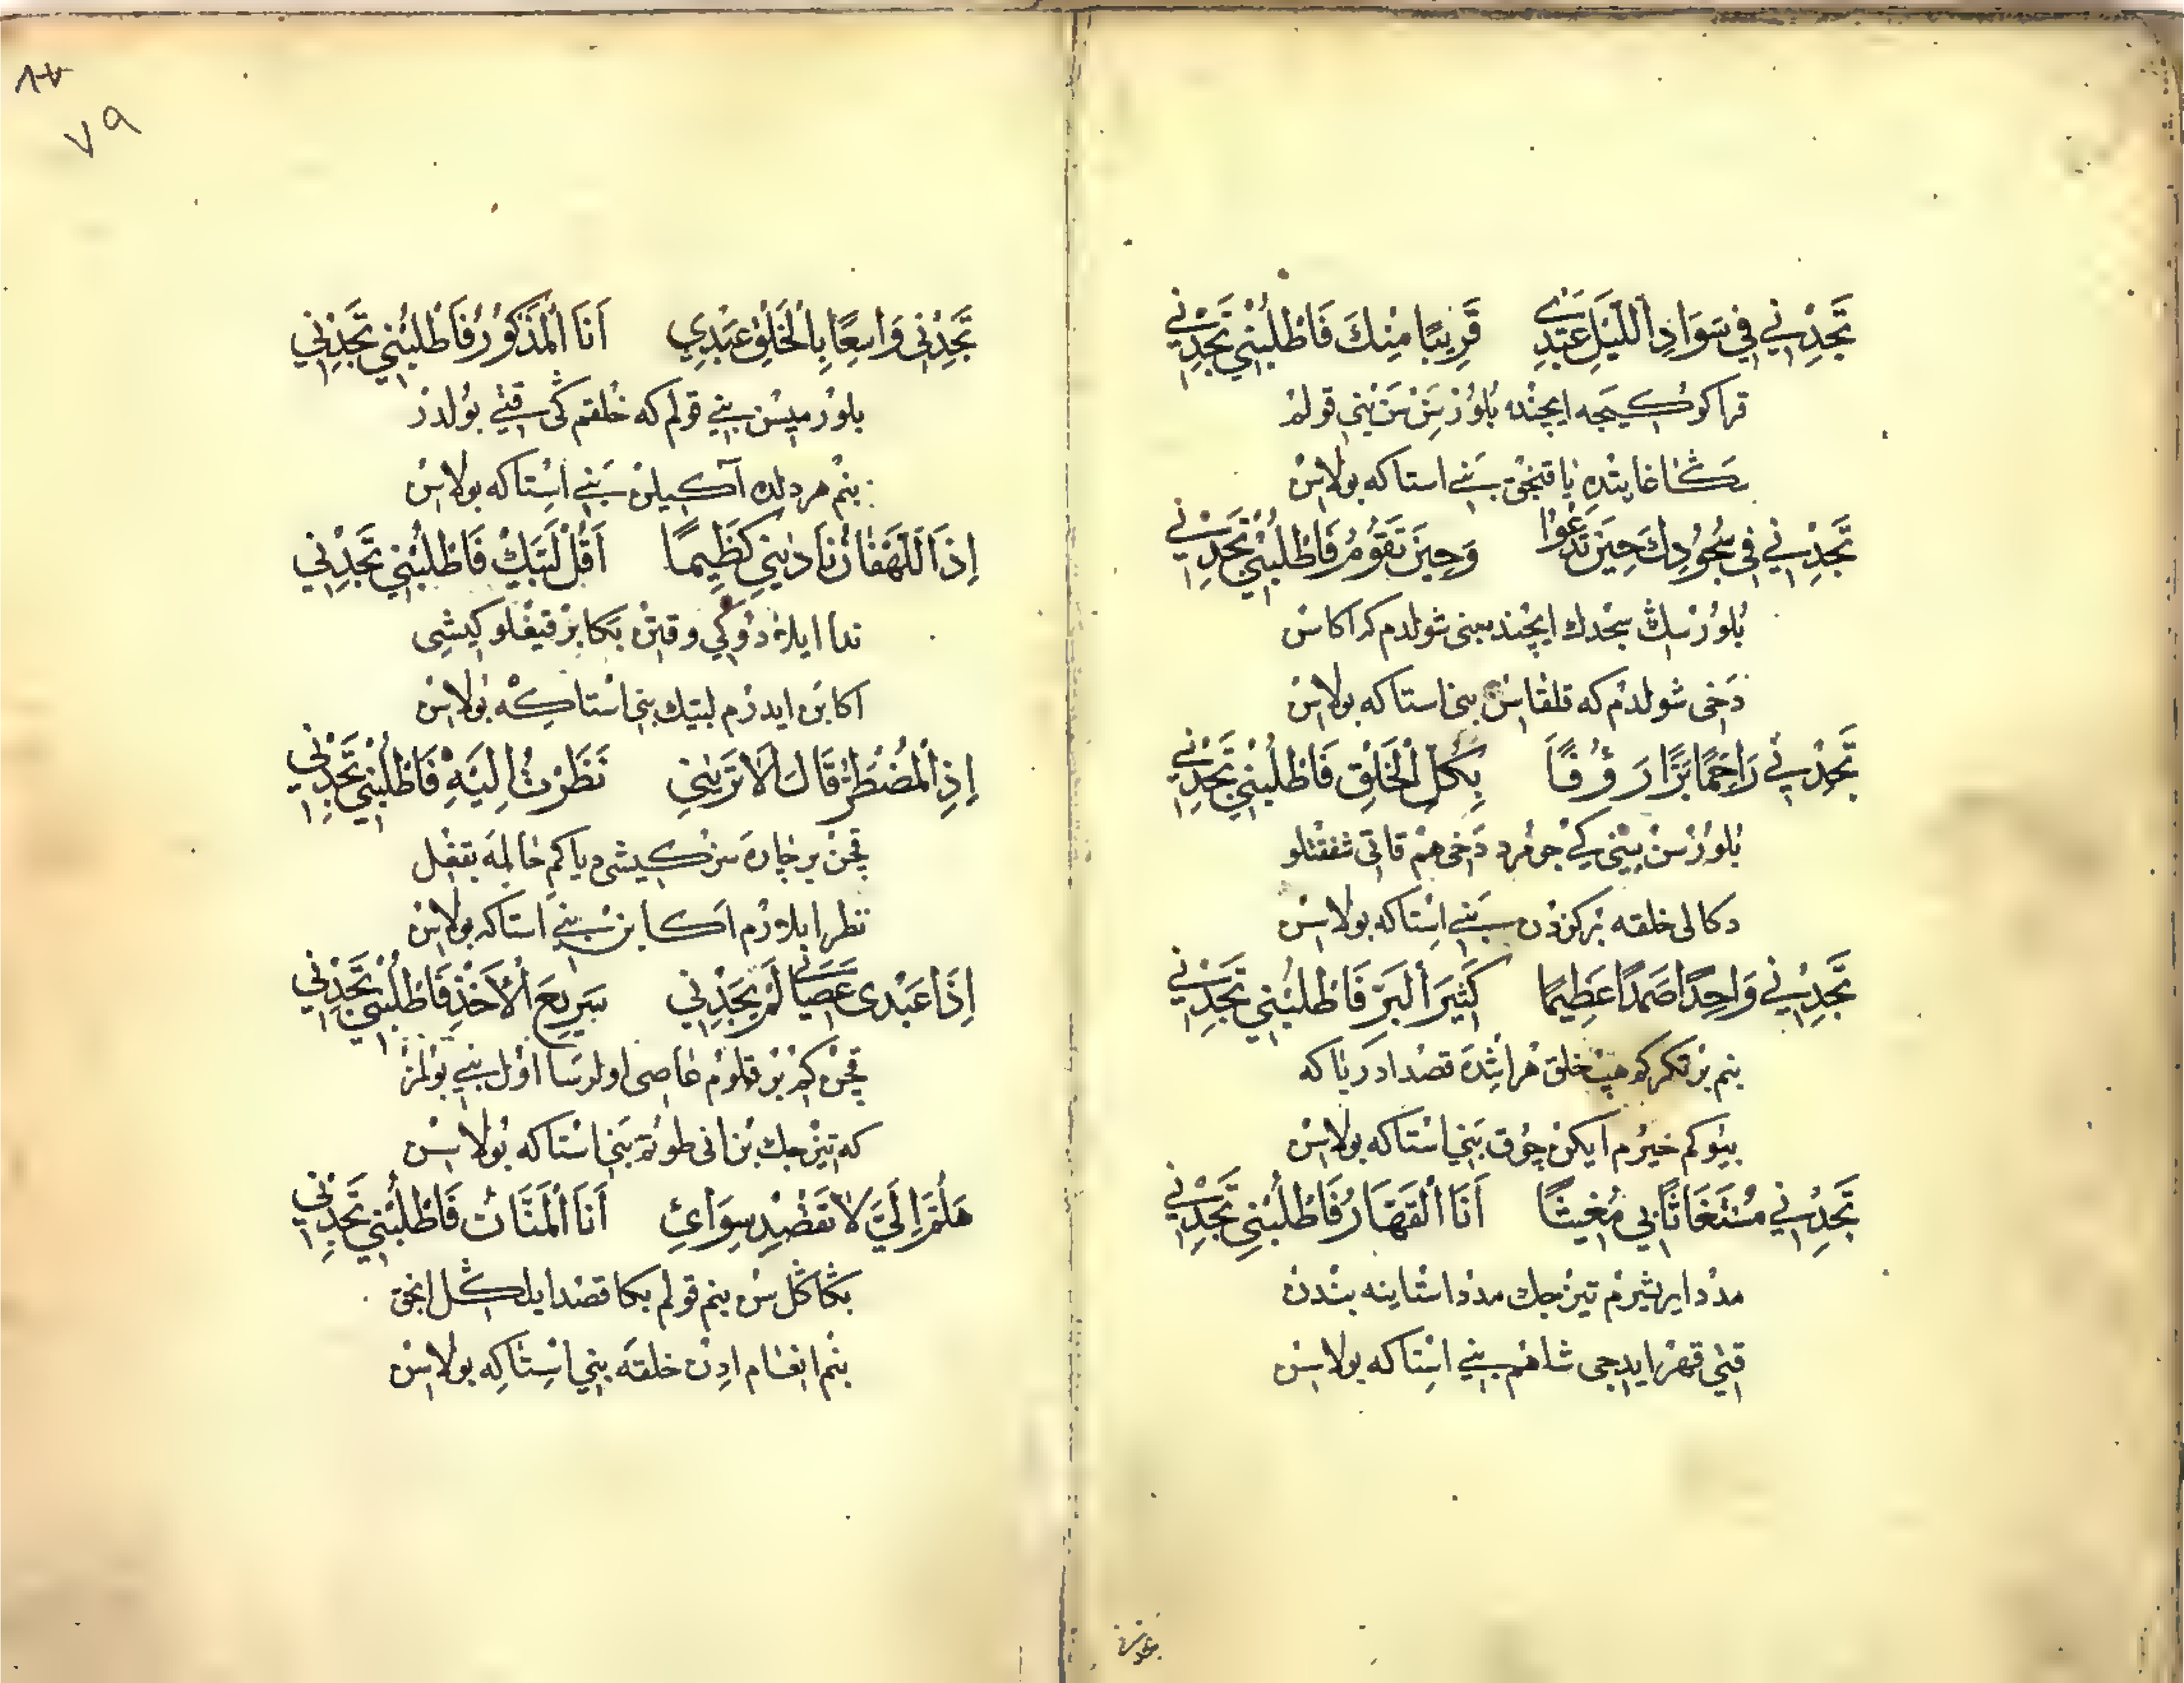 تَجِدْنِي فِي سَوَادِ اللَّيْلِ عَبْدِي قَرِيبًا مِنْكَ فَاطْلُبْنِي تَجِدْنِي
قراكو كيجه ايچنده بلورسن سن بنى قولم
سكا غايتده ياقنجق بنى استاكه بولاسن
تَجِدْنِي فِي سُجُودِكَ حِينَ تَدْعُوا وَحِينَ تَقُومُ فَاطْلُبْنِي تَجِدْنِي
بلورسك سجدك ايچنده بنى شولدم كه اكاسن
دخى شولدم كه قلقاسن بنى استاكه بولاسن
تَجِدْنِي رَاحِمًا بَرًّا رَؤُفًا بِكُلِّ الْخَلْقِ فَاطْلُبْنِي تَجِدْنِي
بلورسن بنى كى جومرد دخى هم قاتى شفقتلو
دكالى خلقه بركزدن بنى استاكه بولاسن
تَجِدْنِي وَاحِدًا صَمَدًا عَظِيمًا كَثِيرَ الْبَرِّ فَاطْلُبْنِي تَجِدْنِي
بنم بر خلق هر قصد ادر ياكه
خيرم ايكن چوق بنى استاكه بولاسن
تَجِدْنِي مُسْتَغَاثًا بِي مُغِيثًا أَنَا الْقَهَّارُ فَاطْلُبْنِي تَجِدْنِي
مدد ايريشيرم تيزجك مدد استاينه بندن
قنى قهر ايدجى شاهم بنى استاكه بولاسن
تجدنى
٨٧
٧٩
تَجِدْنِي وَاسِعًا بِالْخَلْقِ عَبْدِي أَنَا الْمَذْكُورُ فَاطْلُبْنِي تَجِدْنِي
بلورميسن بنى قولم كه خلقم كى قنى بولدز
بنم هر دلده آكيلن بنى استاكه بولاسن
إِذَا اللَّهْفَانُ نَادَانِي كَظِيمًا أَقُلْ لَبَّيْكْ فَاطْلُبْنِي تَجِدْنِي
ندا ايله دوكى وقتن بكا بر قيغلو كيشى
اكا بن ايدرم لبيك بنى استاكه بولاسن
إِذِ الْمُضْطَرُّ قَالَ أَلَا تَرَانِي نَظَرْتُ إِلَيْهِ فَاطْلُبْنِي تَجِدْنِي
قچن بر چاره سز كيشى ديا كم حالمه بقغل
نظر ايلدرم اكا بن بنى استاكه بولاسن
إِذَا عَبْدِى عَصَانِي لَمْ يَجِدْنِي سَرِيعَ الْأَخْذِ فَاطْلُبْنِي تَجِدْنِي
قچن كم بر قلوم عاصى اولرسا اول بنى بولمز
كه تيزجك بن انى طوتم بنى استاكه بولاسن
هَلُمَّ إِلَيَّ لَا تَقْصِدْ سِوَائِ أَنَا الْمَنَّانُ فَاطْلُبْنِي تَجِدْنِي
بكا كل سن بنم قولم بكا قصد ايله كل انجق
بنم انعام ادن خلقه بنى استاكه بولاسن